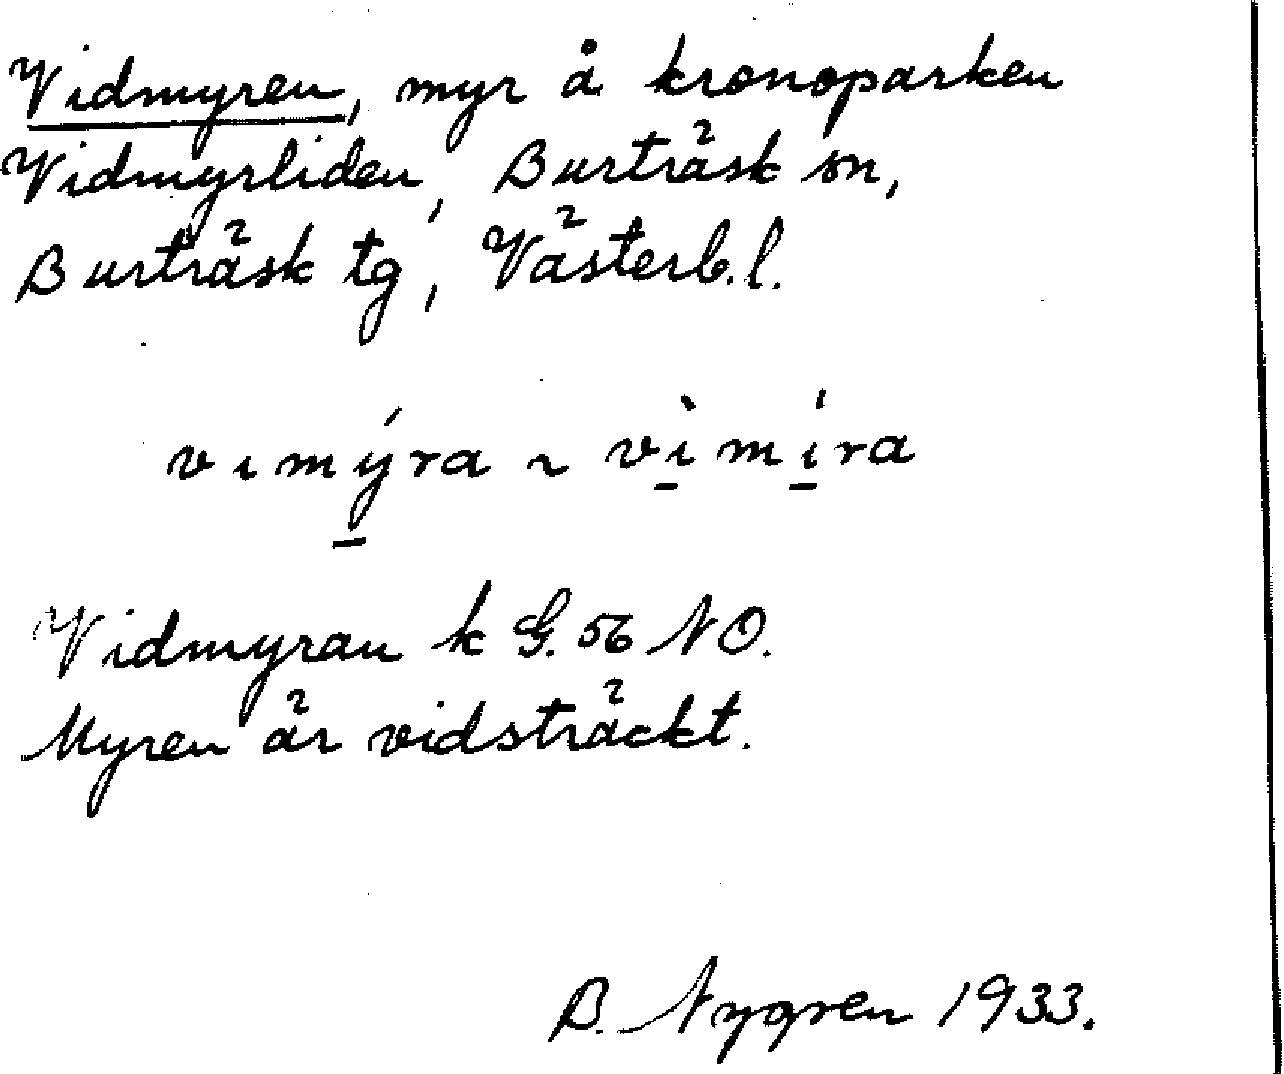 Vidmyren, myr å kronoparken
Vidmyrliden, Burträsk sn,
Burträsk tg, Västerb.l.
vımý̱ra ~ vì̱mí̱ra
Vidmyran k G. 56 NO.
Myren är vidsträckt.
B. Nygren 1933.